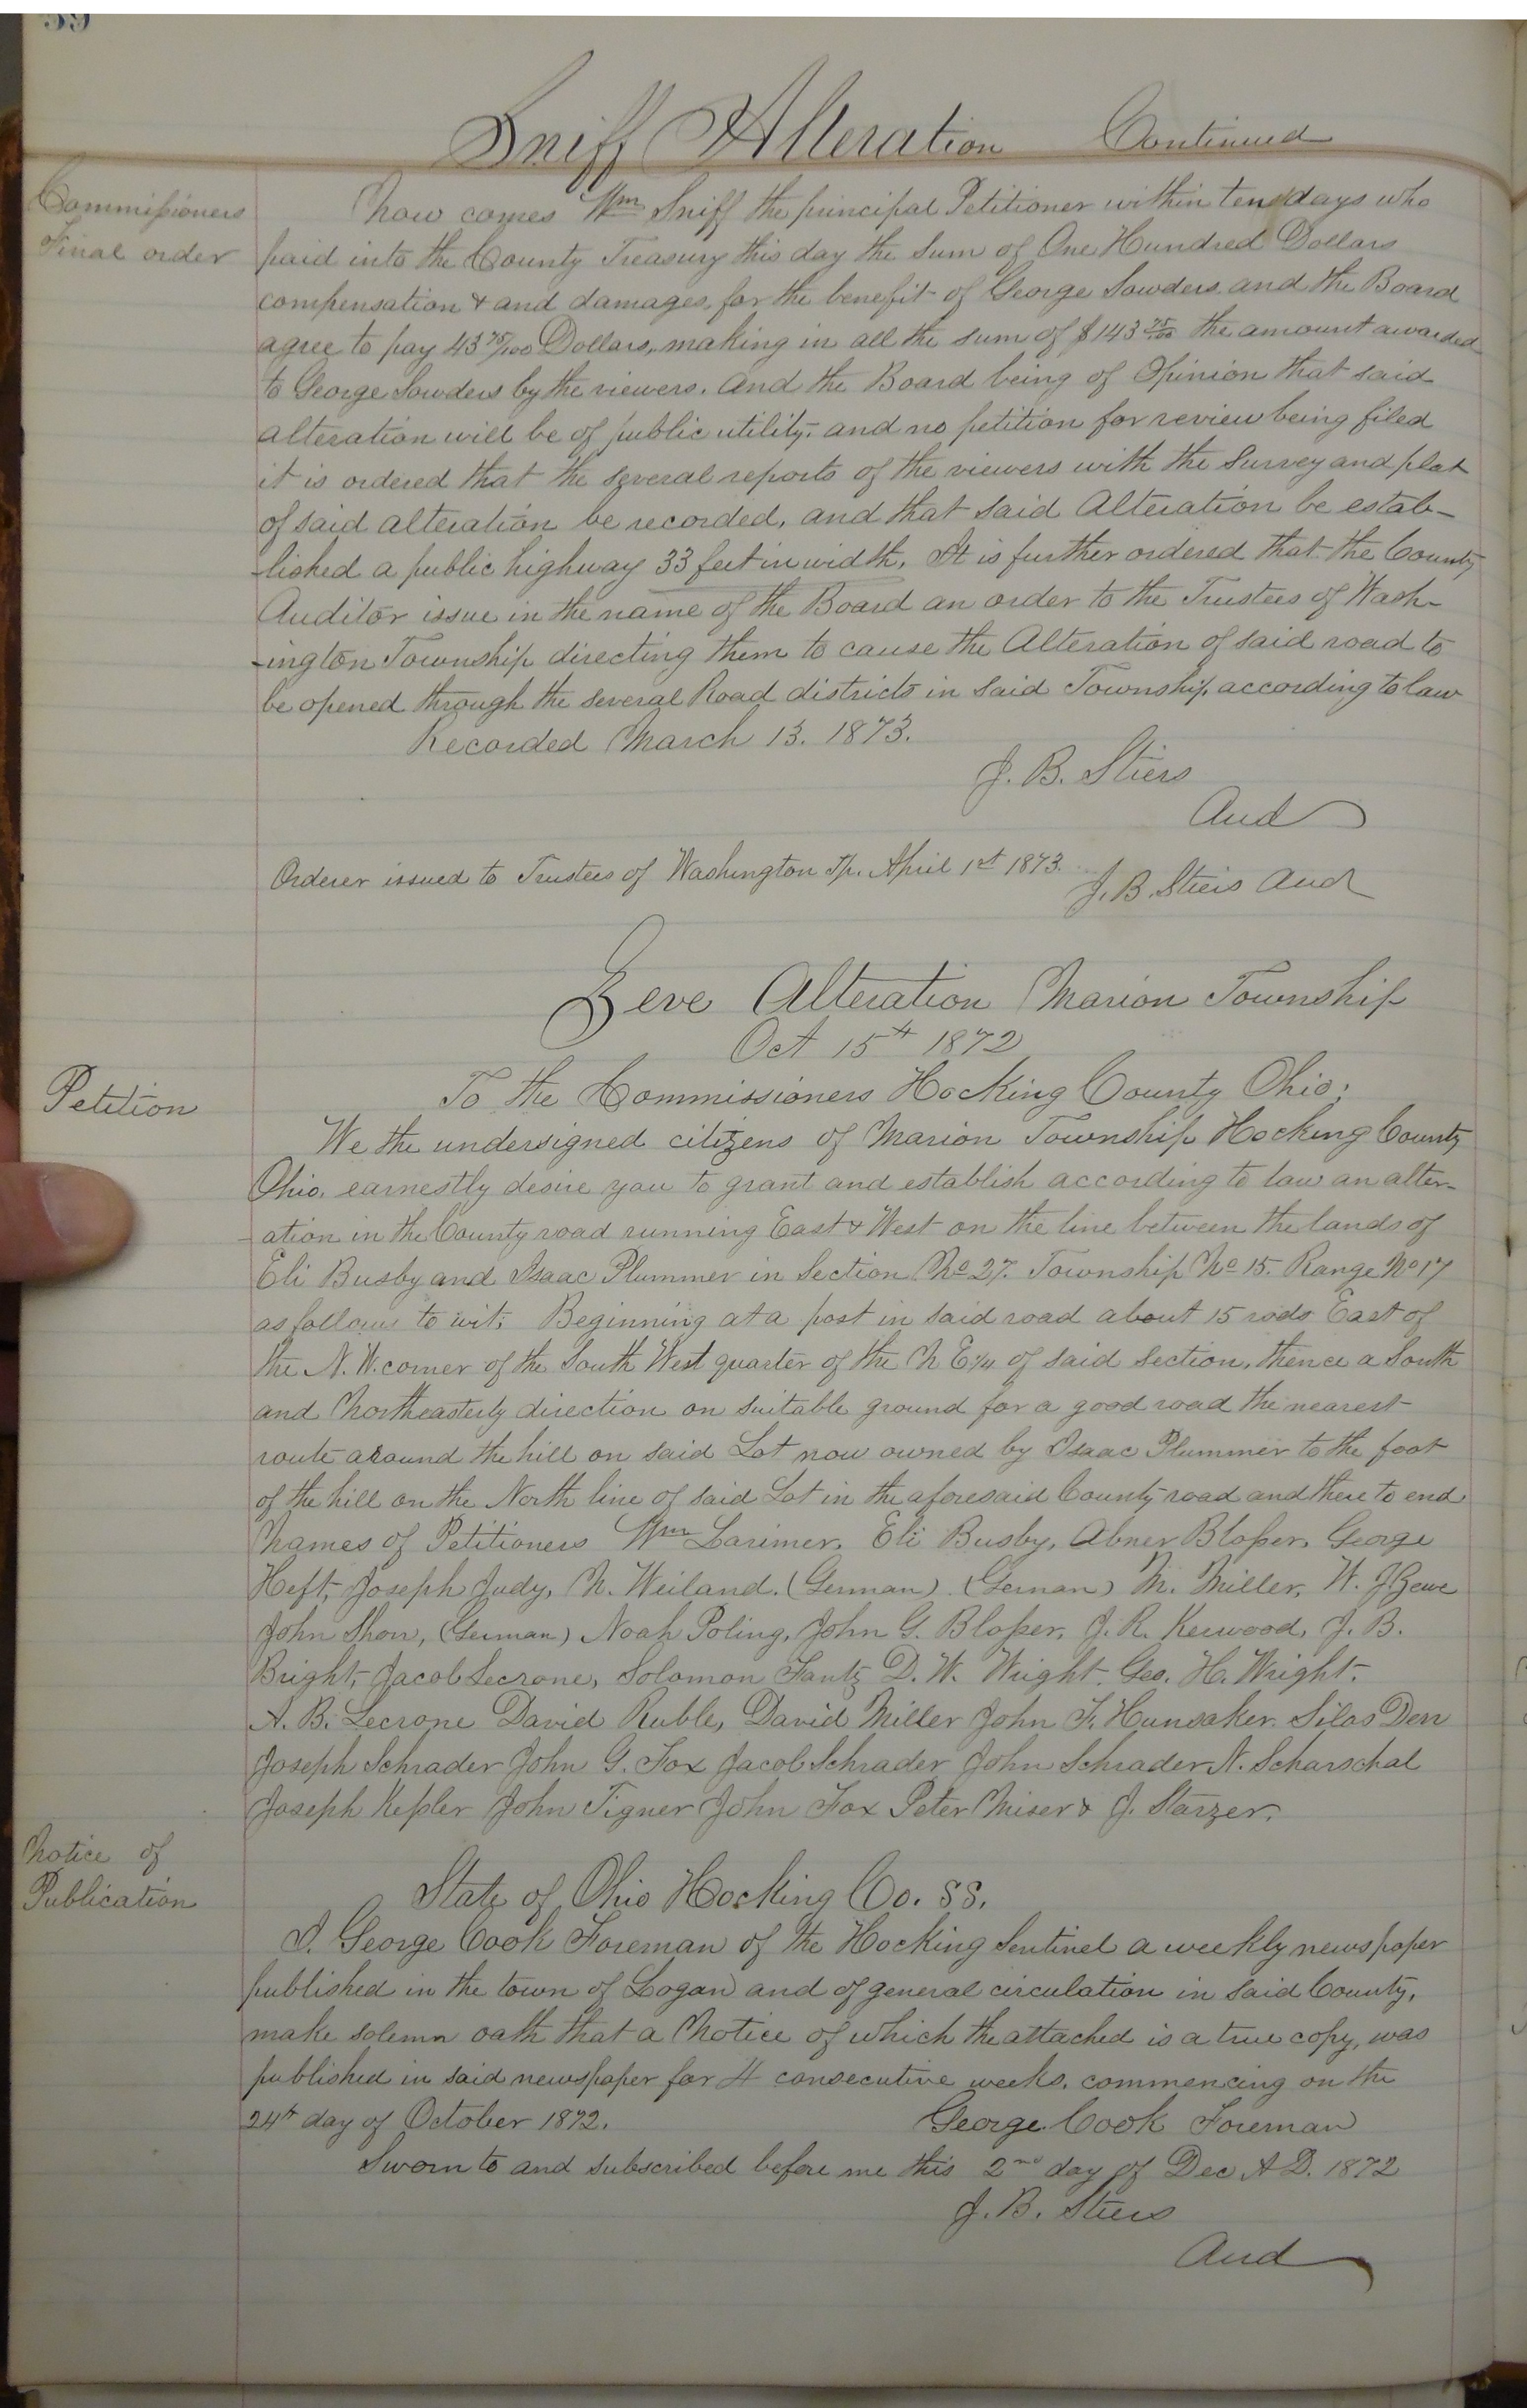 59
Sniff Alteration Continued
Commissioners
Final order
Now comes Wm Sniff the principal Petitioner within ten days who
paid into the County Treasury this day the Sum of One Hundred Dollars
compensation & and damages, for the benefit of George Sowders and the Board
agree to pay 43 75/100 Dollars, making in all the sum of $143 75/100 the amount awarded
to George Sowders by the viewers. And the Board being of Opinion that said
alteration will be of public utility, and no petition for review being filed
it is ordered that the several reports of the viewers with the Survey and plat
of said alteration be recorded, and that said Alteration be estab-
-lished a public highway 33 feet in width. It is further ordered that the County
Auditor issue in the name of the Board an order to the Trustees of Wash-
-ington Township directing them to cause the Alteration of said road to
be opened through the several Road districts in said Township, according to law
Recorded March 13. 1873.
J. B. Stiers
Aud
Orderer issued to Trustees of Washington Tp. April 1st 1873.
J. B. Stiers Aud
Zeve Alteration Marion Township
Oct 15th 1872
Petition
To the Commissioners Hocking County Ohio;
We the undersigned citizens of Marion Township Hocking County
Ohio, earnestly desire you to grant and establish according to law an alter-
-ation in the County road running East & West on the line between the lands of
Eli Busby and Isaac Plummer in Section No 27. Township No 15. Range No 17
as follows to wit; Beginning at a post in said road about 15 rods East of
the N. W. corner of the South West quarter of the N E 1/4 of said section, thence a South
and Northeasterly direction on suitable ground for a good road the nearest
route around the hill on said Lot now owned by Isaac Plummer to the foot
of the hill on the North line of said Lot in the aforesaid County road and there to end
Names of Petitioners Wm Larimer, Eli Busby, Abner Blosser, George
Heft, Joseph Judy, N. Weiland. (German) (German) M. Miller, W. J.
John Shon, (German) Noah Poling, John G. Blosser, J. R. Kerwood, J. B.
Bright, Jacob Lecrone, Solomon Fantz D. W. Wright. Geo. H. Wright.
A. B. Lecrone David Ruble, David Miller John F. Hunsaker. Silas Den
Joseph Schrader John G. Fox Jacob Schrader John Schrader N. Scharschal
Joseph Kessler John Tigner John Fox Peter Miser & J. Starzer.
Notice of
Publication
State of Ohio Hocking Co. SS.
I. George Cook Foreman of the Hocking Sentinel a weekly newspaper
published in the town of Logan and of general circulation in said County,
make solemn oath that a Notice of which the attached is a true copy, was
published in said newspaper for 4 consecutive weeks, commencing on the
24th day of October 1872.
George Cook Foreman
Sworn to and subscribed before me this 2nd day of Dec A D. 1872
J. B. Stiers
Aud